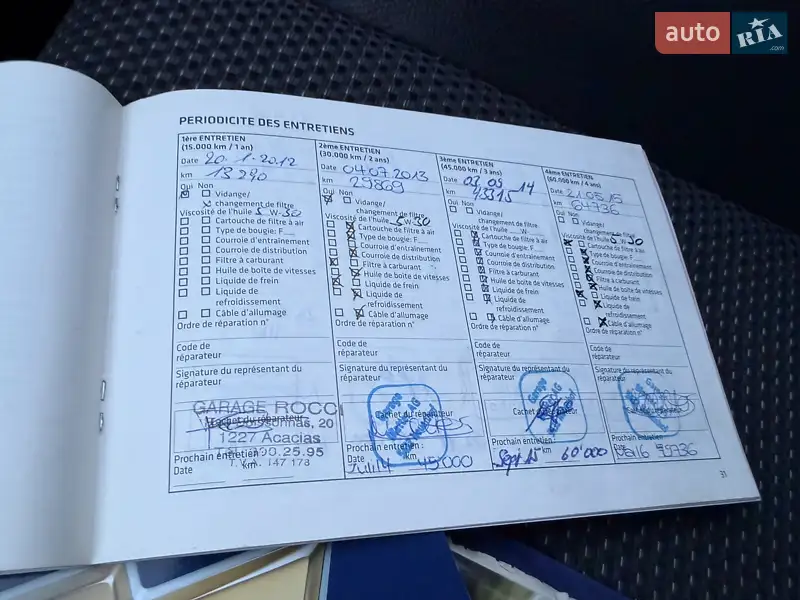 auto RIA.com
PERIODICITE DES ENTRETIENS
1ère ENTRETIEN
(15.000 km / 1 an)
Date 20.1.2012
km 13 290
Oui Non
Vidange/
changement de filtre
Viscosité de l'huile 5 W-30
Cartouche de filtre à air
Type de bougie: F
Courroie d'entrainement
Courroie de distribution
Filtre à carburant
Huile de boîte de vitesses
Liquide de frein
Liquide de
refroidissement
Câble d'allumage
Ordre de réparation n°
Code de
réparateur
Signature du représentant du
GARAGE ROCCI
Cachet du réparateur
20
1227 Acacias
Prochain entretien
Date km
T.V.A. 147 178
2ème ENTRETIEN
(30.000 km / 2 ans)
Date 04.07.2013
km 29869
Oui Non
Vidange/
changement de filtre
Viscosité de l'huile 5W-30
Cartouche de filtre à air
Type de bougie: F
Courroie d'entrainement
Courroie de distribution
Filtre à carburant
Huile de boîte de vitesses
Liquide de frein
Liquide de
refroidissement
Câble d'allumage
Ordre de réparation n°
Code de
réparateur
Signature du représentant du
Garage
Cachet du réparateur
Prochain entretien:
Date km
45'000
3ème ENTRETIEN
(45.000 km / 3 ans)
Date 03.09.14
km 43315
Oui Non
Vidange/
changement de filtre
Viscosité de l'huile W-
Cartouche de filtre à air
Type de bougie: F
Courroie d'entrainement
Courroie de distribution
Filtre à carburant
Huile de boîte de vitesses
Liquide de frein
Liquide de
refroidissement
Câble d'allumage
Ordre de réparation n°
Code de
réparateur
Signature du représentant du
Garage
Cachet du réparateur
Prochain entretien:
Date Sept 15 km 60'000
4ème ENTRETIEN
(60.000 km / 4 ans)
Date 21.05.15
km 64736
Oui Non
Vidange/
changement de filtre
Viscosité de l'huile 0W-30
Cartouche de filtre à air
Type de bougie: F
Courroie d'entrainement
Courroie de distribution
Filtre à carburant
Huile de boîte de vitesses
Liquide de frein
Liquide de
refroidissement
Câble d'allumage
Ordre de réparation n°
Code de
réparateur
Signature du représentant du
Cachet du réparateur
Prochain entretien
Date km
31